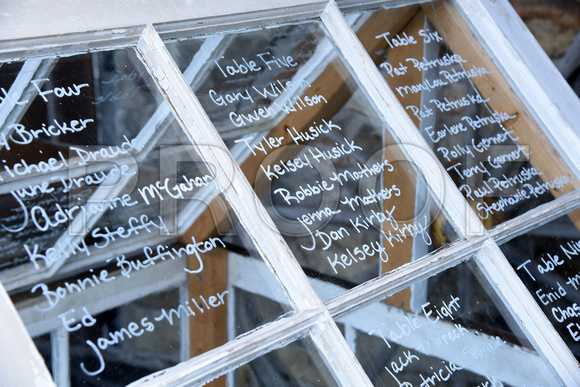 Four
Bricker
Michael Draude
June Draude
Adrianne McGahan
Kelly Steffy
Bonnie Buffington
Ed
James Miller
Table Five
Gary Wilson
Gwen Wilson
Tyler Husick
Kelsey Husick
Robbie Mathers
Jenna Mathers
Dan Kirby
Kelsey Kirby
Table Six
Pat Petruska
Mary Lou Petruska
Pat Petruska
Earlene Petruska
Polly Gernert
Terry Gernert
Paul Petruska
Stephanie Petruska
Table Eight
Jack
Patricia
Table Ni
Enid
Chas
E
PROOF